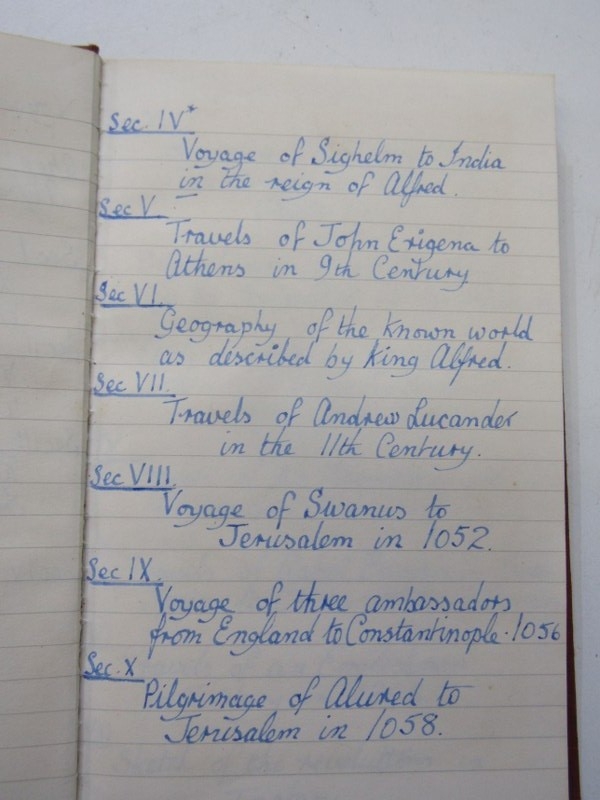 Sec. IV*
Voyage of Sighelm to India
in the reign of Alfred.
Sec V.
Travels of John Erigena to
Athens in 9th Century
Sec VI.
Geography of the known world
as described by King Alfred.
Sec VII.
Travels of Andrew Lucander
in the 11th Century.
Sec VIII.
Voyage of Swanus to
Jerusalem in 1052.
Sec IX.
Voyage of three ambassadors
from England to Constantinople. 1056
Sec. X
Pilgrimage of Alured to
Jerusalem in 1058.